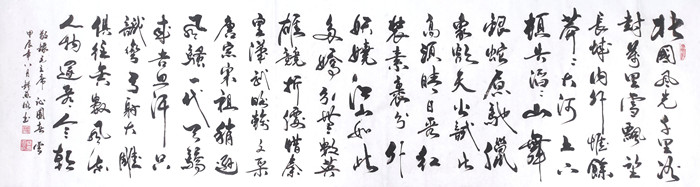 北國風光千里冰
封萬里雪飄望
長城内外惟餘
莽莽大河上下
頓失滔滔山舞
銀蛇原馳臘
象欲与天公試比
高須晴日看紅
裝素裹分外
妖嬈江山如此
多嬌引無數英
雄競折腰惜秦
皇漢武略輸文采
唐宗宋祖稍遜
風騷一代天驕
成吉思汗只
識彎弓射大雕
俱往矣數風流
人物還看今朝
敬錄毛主席沁園春雪
甲辰年八月